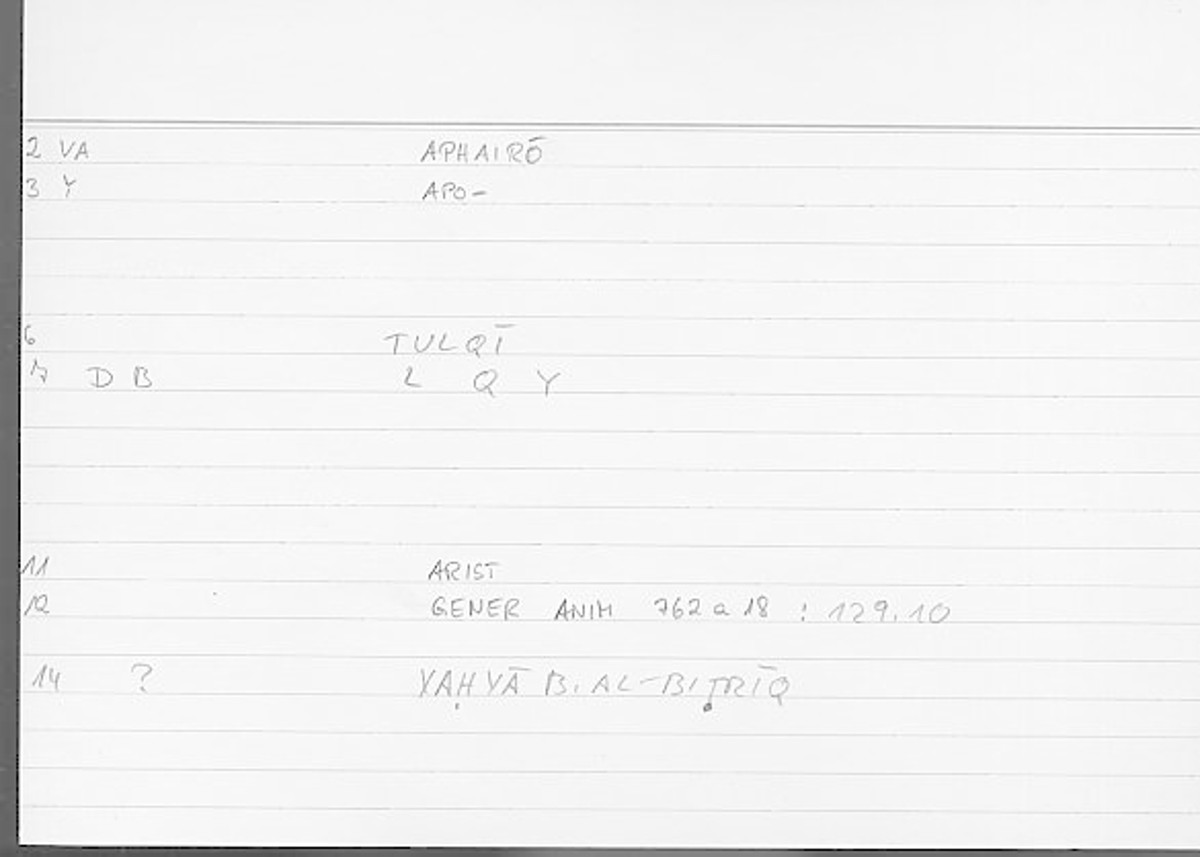 2 VA APHAIRŌ
3 Y APO-
6 TULQĪ
7 D B L Q Y
11 ARIST
12 GENER ANIM 762 a 18 : 129.10
14 ? YAḤYĀ B. AL-BIṬRĪQ